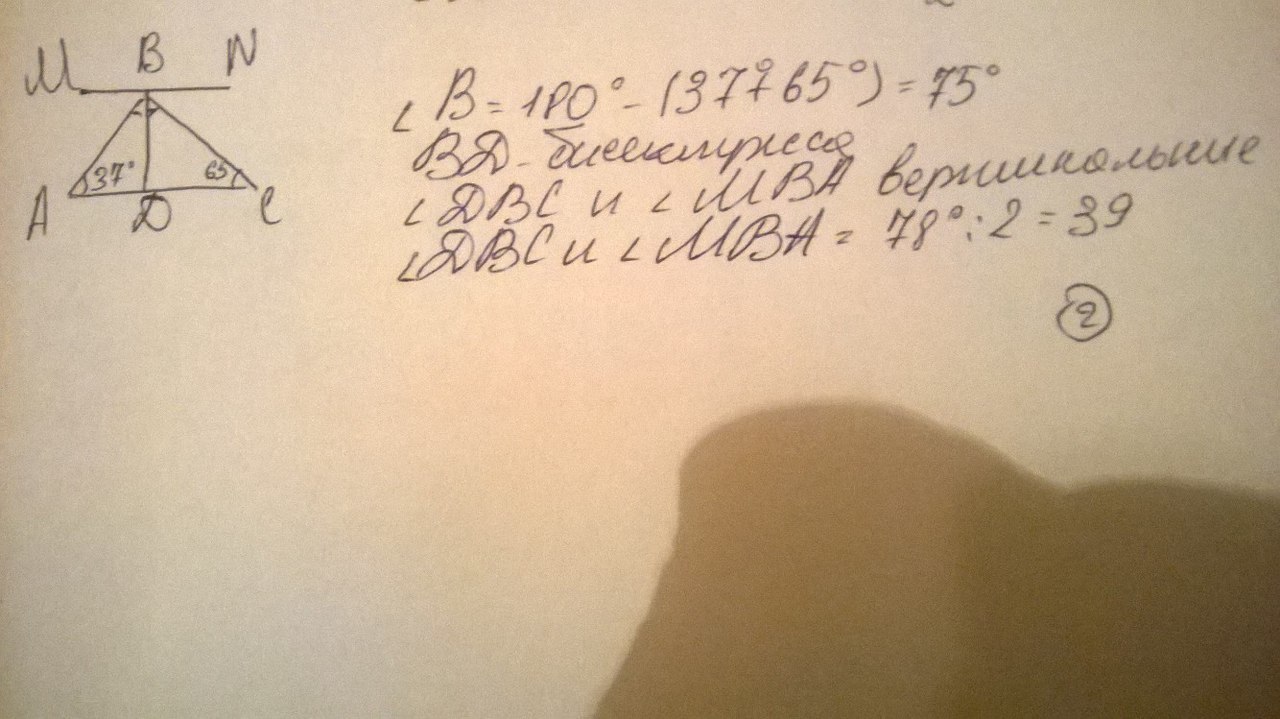 M B N
37° 65
A D C
∠ B = 180° - (37°+65°) = 75°
BD - биссектриса
∠ DBC и ∠ MBA вертикальные
∠ DBC и ∠ MBA = 78° : 2 = 39
2